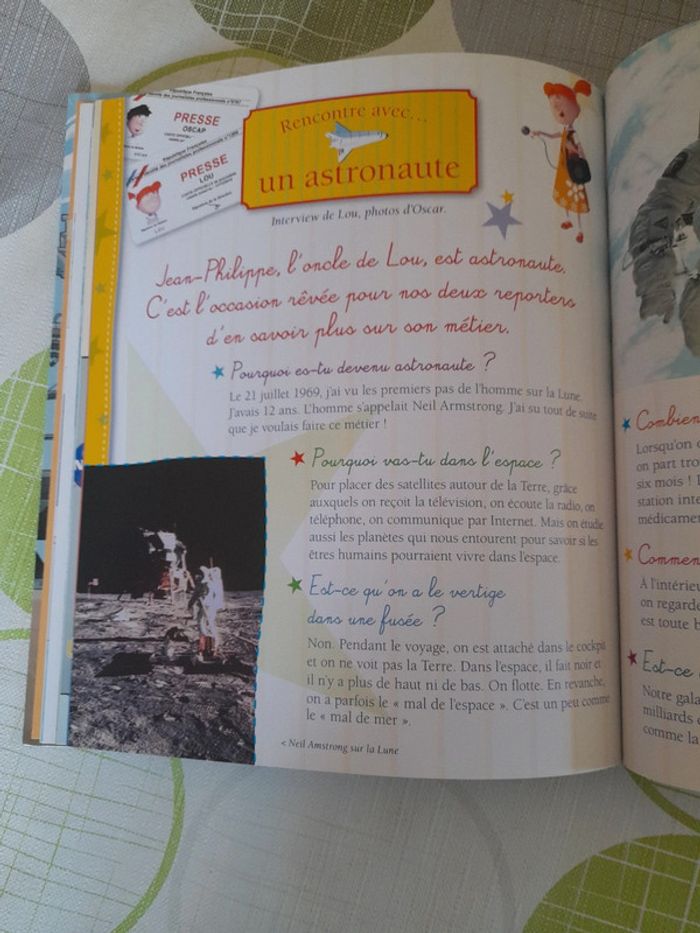 République Française
PRESSE
OSCAR
République Française
des journalistes professionnels
PRESSE
LOU
LOU
Rencontre avec...
un astronaute
Interview de Lou, photos d'Oscar.
Jean-Philippe, l'oncle de Lou, est astronaute.
C'est l'occasion rêvée pour nos deux reporters
d'en savoir plus sur son métier.
Pourquoi es-tu devenu astronaute ?
Le 21 juillet 1969, j'ai vu les premiers pas de l'homme sur la Lune.
J'avais 12 ans. L'homme s'appelait Neil Armstrong. J'ai su tout de suite
que je voulais faire ce métier !
Pourquoi vas-tu dans l'espace ?
Pour placer des satellites autour de la Terre, grâce
auxquels on reçoit la télévision, on écoute la radio, on
téléphone, on communique par Internet. Mais on étudie
aussi les planètes qui nous entourent pour savoir si les
êtres humains pourraient vivre dans l'espace.
Est-ce qu'on a le vertige
dans une fusée ?
Non. Pendant le voyage, on est attaché dans le cockpit
et on ne voit pas la Terre. Dans l'espace, il fait noir et
il n'y a plus de haut ni de bas. On flotte. En revanche,
on a parfois le « mal de l'espace ». C'est un peu comme
le « mal de mer ».
< Neil Amstrong sur la Lune
Combien
Lorsqu'on
on part tro
six mois !
station inte
médicamen
Commen
À l'intérieu
on regard
est toute b
Est-ce
Notre gala
milliards
comme la